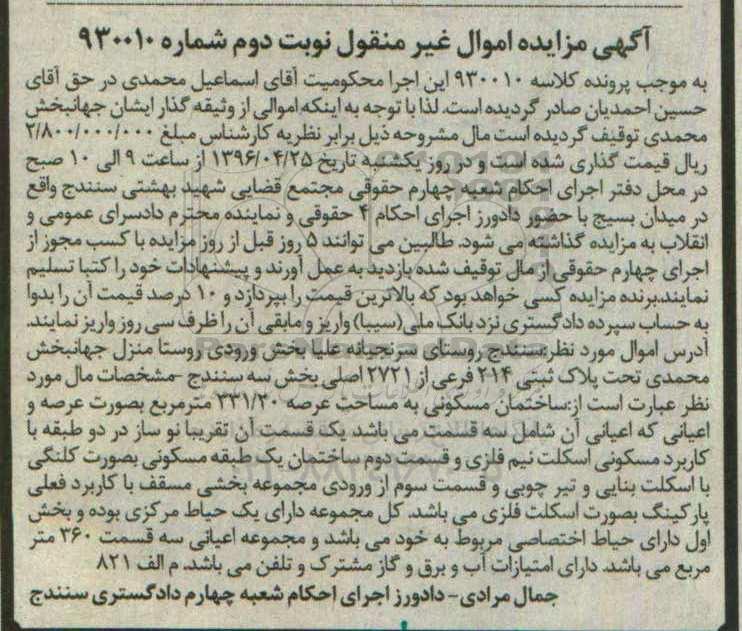 آگهی مزایده اموال غیر منقول نوبت دوم شماره ۹۳۰۰۱۰
به موجب پرونده کلاسه ۹۳۰۰۱۰ این اجرا محکومیت آقای اسماعیل محمدی در حق آقای
حسین احمدیان صادر گردیده است. لذا با توجه به اینکه اموالی از وثیقه گذار ایشان جهانبخش
محمدی توقیف گردیده است مال مشروحه ذیل برابر نظریه کارشناس مبلغ ۲/۸۰۰/۰۰۰/۰۰۰
ریال قیمت گذاری شده است و در روز یکشنبه تاریخ ۱۳۹۶/۰۴/۲۵ از ساعت ۹ الی ۱۰ صبح
در محل دفتر اجرای احکام شعبه چهارم حقوقی مجتمع قضایی شهید بهشتی سنندج واقع
در میدان بسیج با حضور دادورز اجرای احکام ۴ حقوقی و نماینده محترم دادسرای عمومی و
انقلاب به مزایده گذاشته می شود. طالبین می توانند ۵ روز قبل از روز مزایده با کسب مجوز از
اجرای چهارم حقوقی از مال توقیف شده بازدید به عمل آورند و پیشنهادات خود را کتبا تسلیم
نمایند.برنده مزایده کسی خواهد بود که بالاترین قیمت را بپردازد و ۱۰ درصد قیمت آن را بدوا
به حساب سپرده دادگستری نزد بانک ملی(سیبا) واریز و مابقی آن را ظرف سی روز واریز نمایند.
آدرس اموال مورد نظر:سنندج روستای سرنجیانه علیا بخش ورودی روستا منزل جهانبخش
محمدی تحت پلاک ثبتی ۲۱۴ فرعی از ۲۷۲۱ اصلی بخش سه سنندج -مشخصات مال مورد
نظر عبارت است از:ساختمان مسکونی به مساحت عرصه ۳۳۱/۳۰ مترمربع بصورت عرصه و
اعیانی که اعیانی آن شامل سه قسمت می باشد یک قسمت آن تقریبا نو ساز در دو طبقه با
کاربرد مسکونی اسکلت نیم فلزی و قسمت دوم ساختمان یک طبقه مسکونی بصورت کلنگی
با اسکلت بنایی و تیر چوبی و قسمت سوم از ورودی مجموعه بخشی مسقف با کاربرد فعلی
پارکینگ بصورت اسکلت فلزی می باشد. کل مجموعه دارای یک حیاط مرکزی بوده و بخش
اول دارای حیاط اختصاصی مربوط به خود می باشد و مجموعه اعیانی سه قسمت ۳۶۰ متر
مربع می باشد. دارای امتیازات آب و برق و گاز مشترک و تلفن می باشد. م الف ۸۲۱
جمال مرادی- دادورز اجرای احکام شعبه چهارم دادگستری سنندج